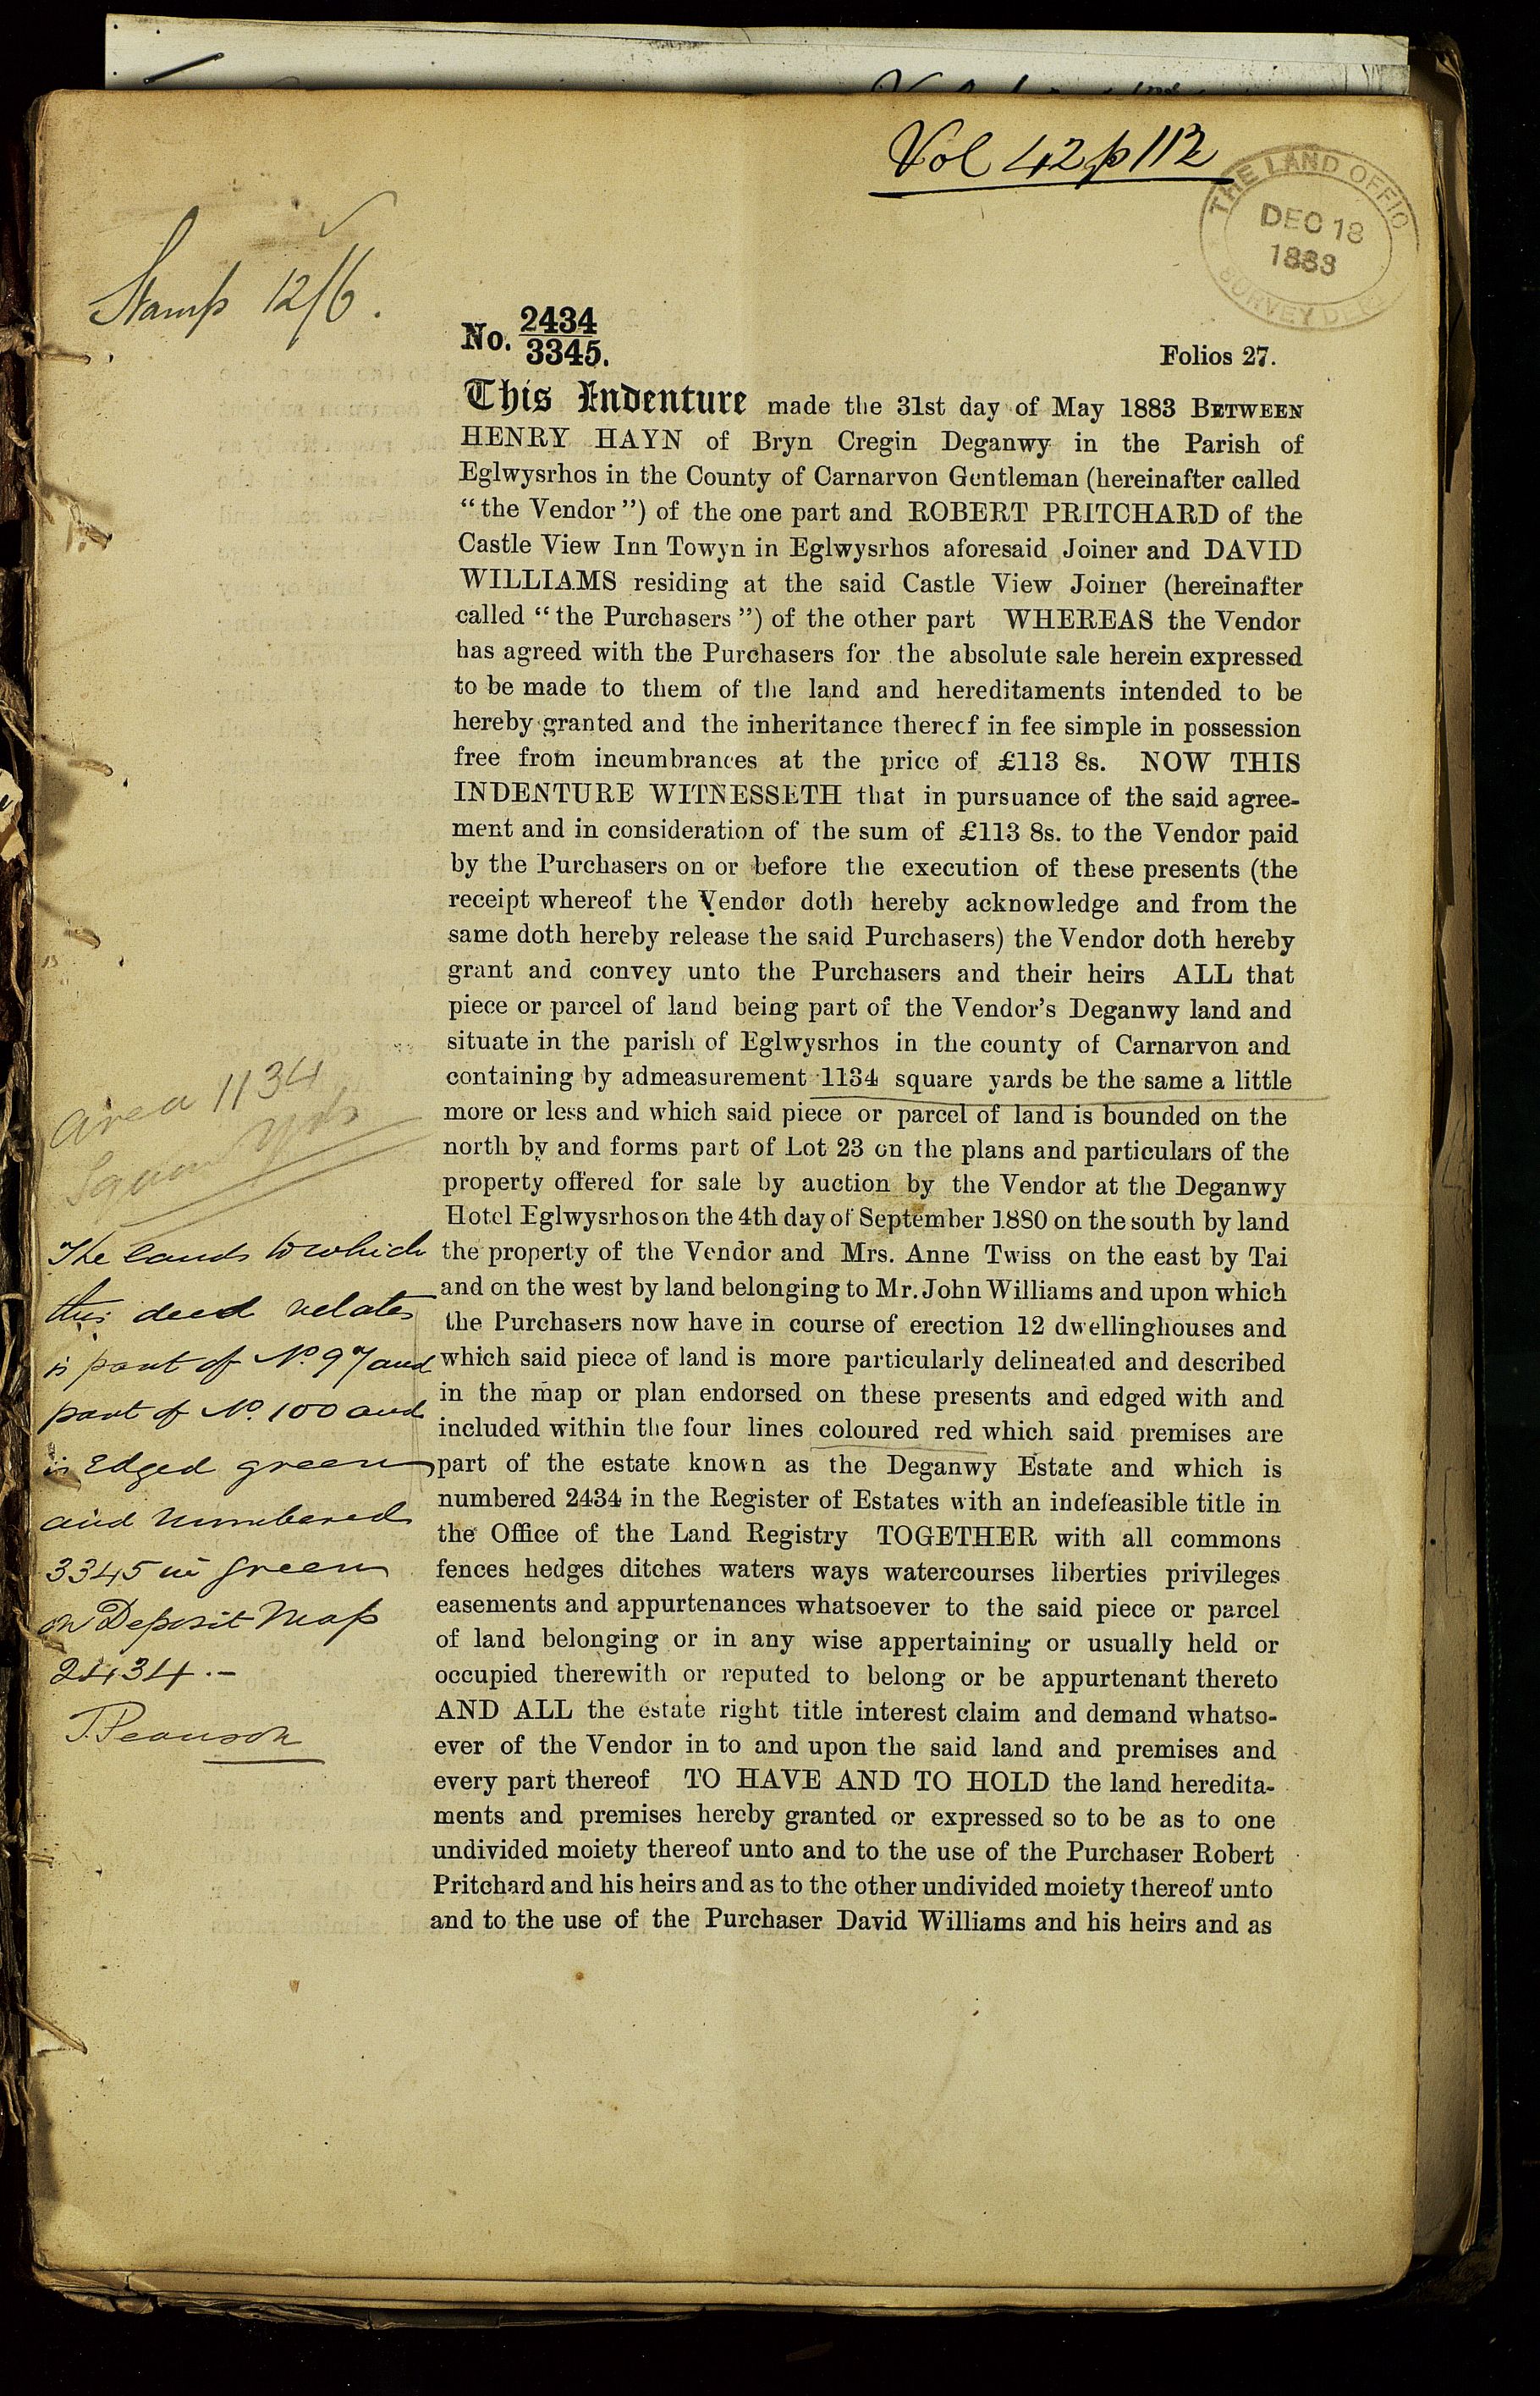 Vol 42 p 112
THE LAND OFFIC
DEC 18
1883
SURVEY DEP
Stamp 12/6.
No. 2434
3345.
Folios 27.
This Indenture made the 31st day of May 1883 BETWEEN
HENRY HAYN of Bryn Cregin Deganwy in the Parish of
Eglwysrhos in the County of Carnarvon Gentleman (hereinafter called
“the Vendor”) of the one part and ROBERT PRITCHARD of the
Castle View Inn Towyn in Eglwysrhos aforesaid Joiner and DAVID
WILLIAMS residing at the said Castle View Joiner (hereinafter
called “the Purchasers”) of the other part WHEREAS the Vendor
has agreed with the Purchasers for the absolute sale herein expressed
to be made to them of the land and hereditaments intended to be
hereby granted and the inheritance thereof in fee simple in possession
free from incumbrances at the price of £113 8s. NOW THIS
INDENTURE WITNESSETH that in pursuance of the said agree-
ment and in consideration of the sum of £113 8s. to the Vendor paid
by the Purchasers on or before the execution of these presents (the
receipt whereof the Vendor doth hereby acknowledge and from the
same doth hereby release the said Purchasers) the Vendor doth hereby
grant and convey unto the Purchasers and their heirs ALL that
piece or parcel of land being part of the Vendor’s Deganwy land and
situate in the parish of Eglwysrhos in the county of Carnarvon and
containing by admeasurement 1134 square yards be the same a little
more or less and which said piece or parcel of land is bounded on the
north by and forms part of Lot 23 on the plans and particulars of the
property offered for sale by auction by the Vendor at the Deganwy
Hotel Eglwysrhos on the 4th day of September 1880 on the south by land
the property of the Vendor and Mrs. Anne Twiss on the east by Tai
and on the west by land belonging to Mr. John Williams and upon which
the Purchasers now have in course of erection 12 dwellinghouses and
which said piece of land is more particularly delineated and described
in the map or plan endorsed on these presents and edged with and
included within the four lines coloured red which said premises are
part of the estate known as the Deganwy Estate and which is
numbered 2434 in the Register of Estates with an indefeasible title in
the Office of the Land Registry TOGETHER with all commons
fences hedges ditches waters ways watercourses liberties privileges
easements and appurtenances whatsoever to the said piece or parcel
of land belonging or in any wise appertaining or usually held or
occupied therewith or reputed to belong or be appurtenant thereto
AND ALL the estate right title interest claim and demand whatso-
ever of the Vendor in to and upon the said land and premises and
every part thereof TO HAVE AND TO HOLD the land heredita-
ments and premises hereby granted or expressed so to be as to one
undivided moiety thereof unto and to the use of the Purchaser Robert
Pritchard and his heirs and as to the other undivided moiety thereof unto
and to the use of the Purchaser David Williams and his heirs and as
area 1134
Square yds
The lands to which
this deed relates
is part of No. 97 and
part of No. 100 and
is Edged green
and numbered
3345 in green
on Deposit Map
2434.-
J. Pearson